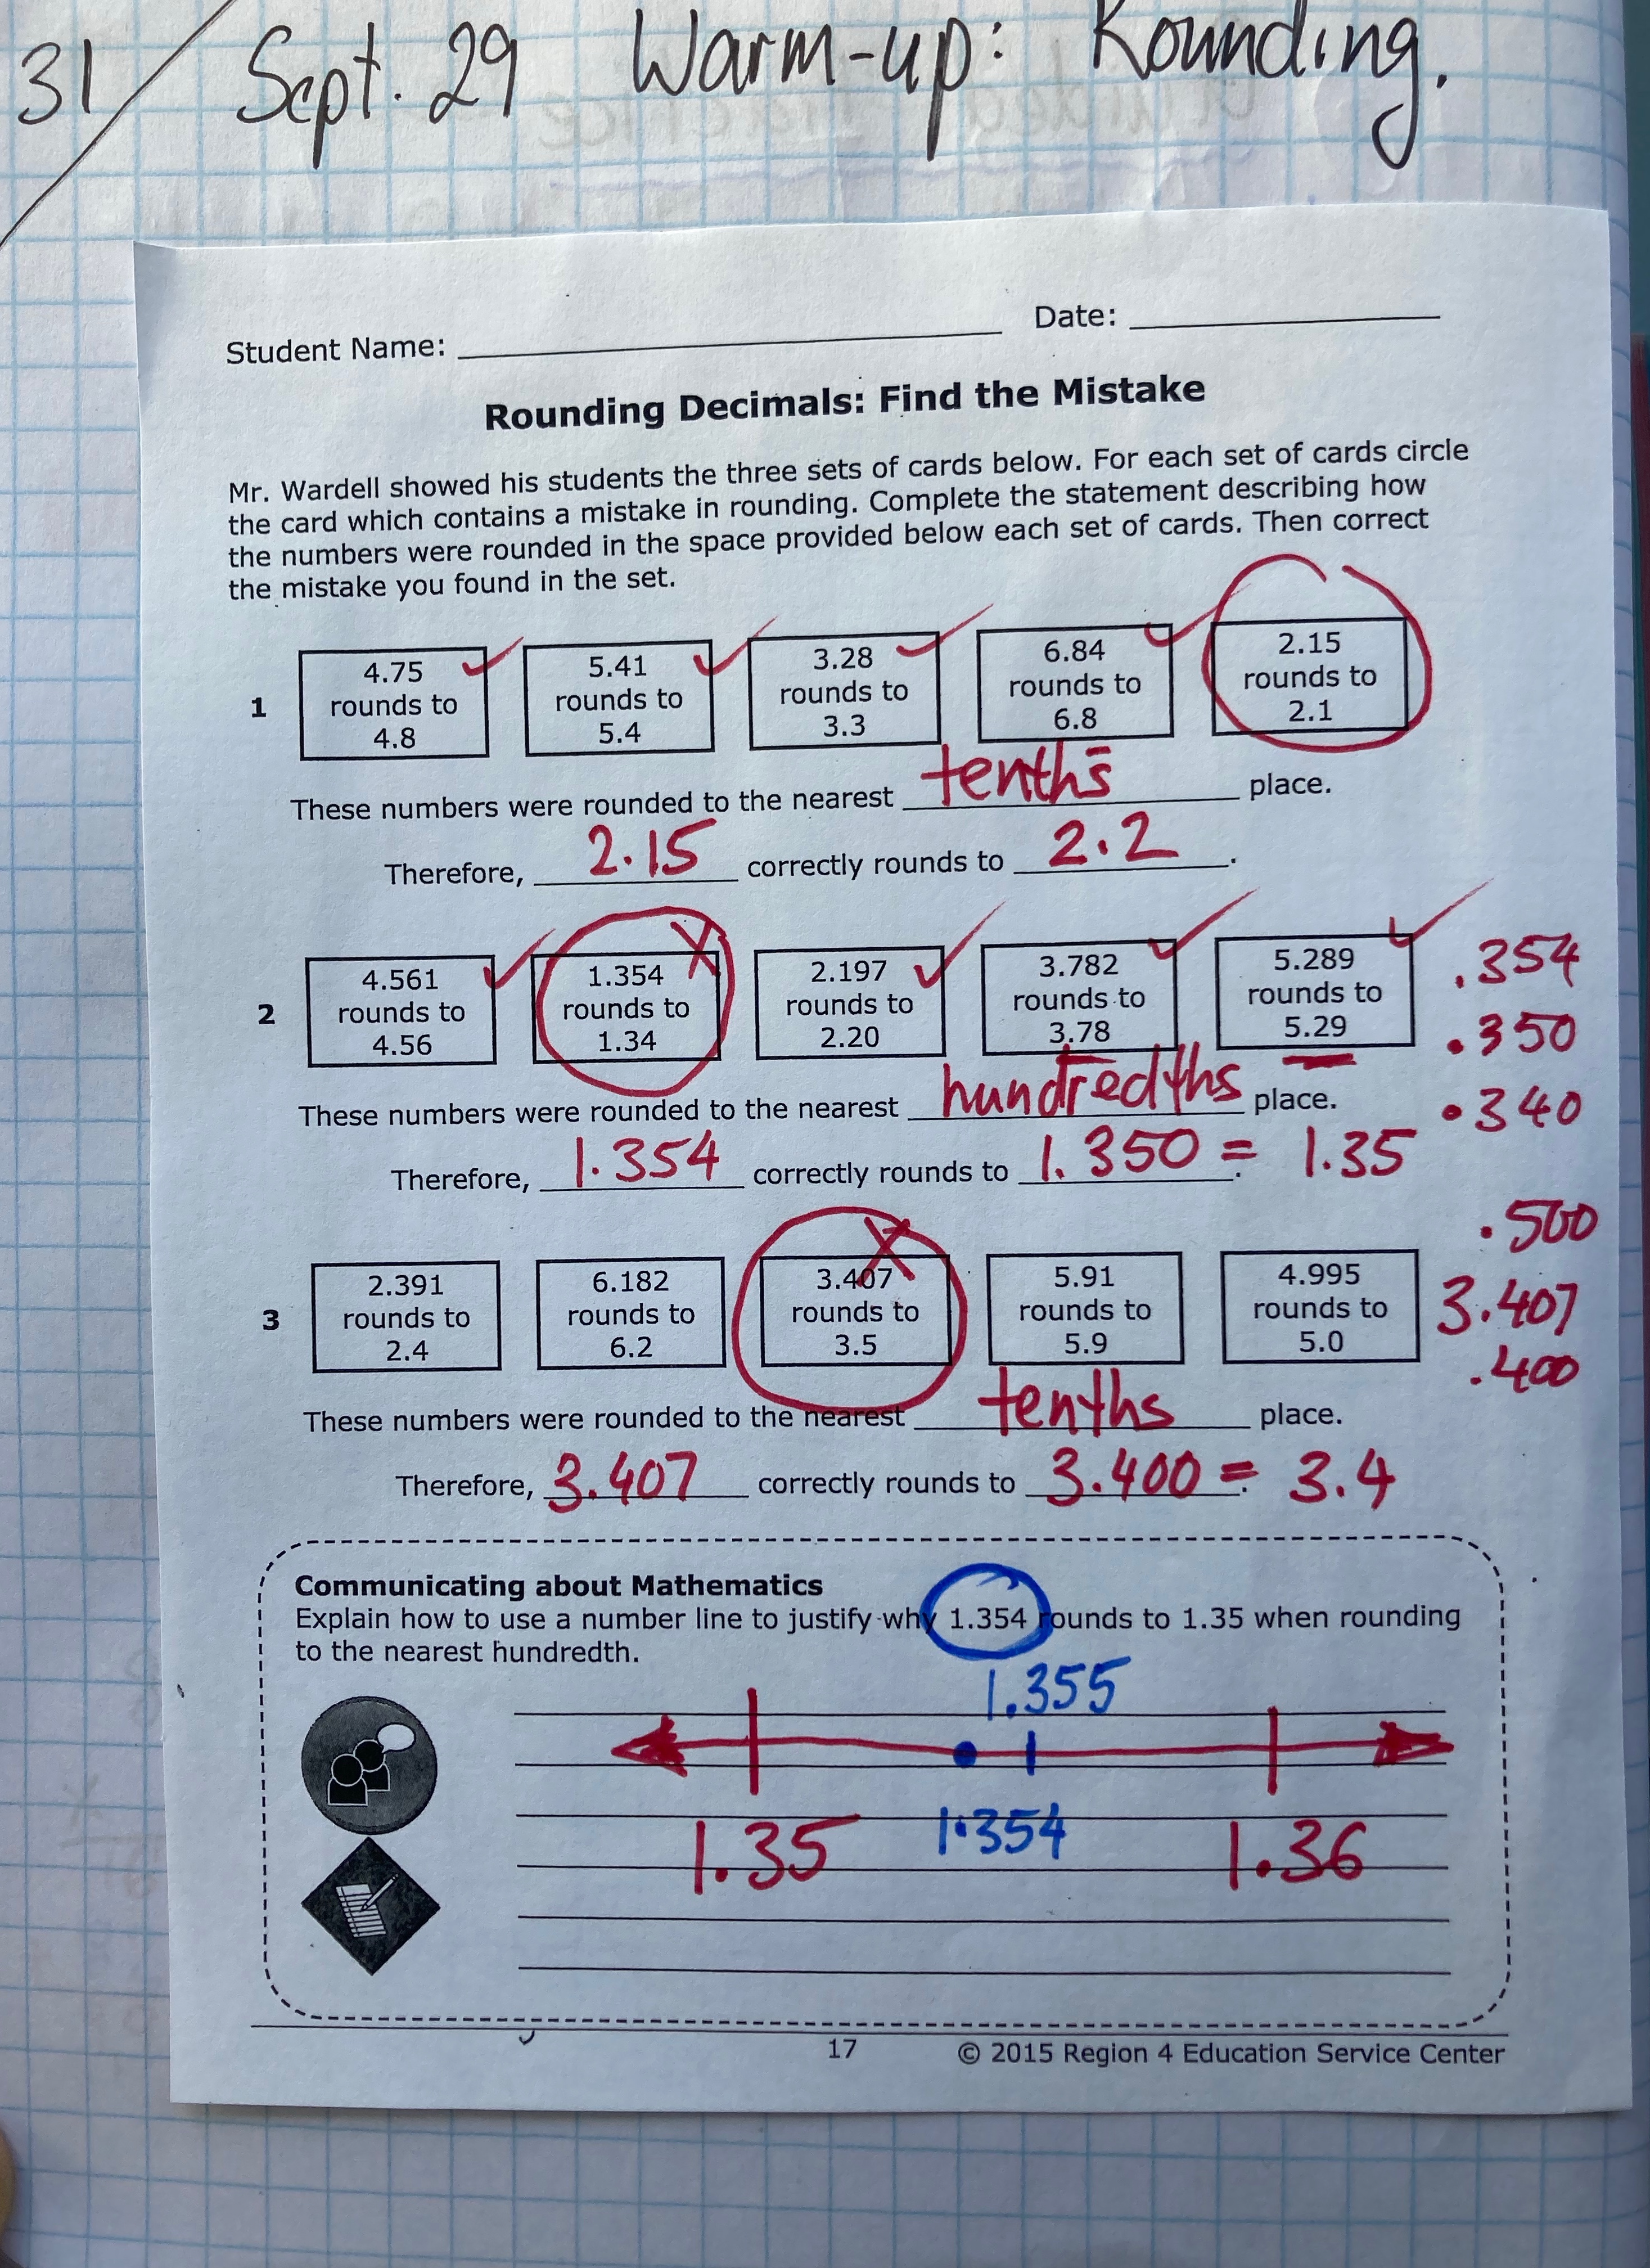 31 Sept. 29 Warm-up: Rounding.
Student Name: Date:
Rounding Decimals: Find the Mistake
Mr. Wardell showed his students the three sets of cards below. For each set of cards circle
the card which contains a mistake in rounding. Complete the statement describing how
the numbers were rounded in the space provided below each set of cards. Then correct
the mistake you found in the set.
1
4.75
rounds to
4.8
5.41
rounds to
5.4
3.28
rounds to
3.3
6.84
rounds to
6.8
2.15
rounds to
2.1
These numbers were rounded to the nearest tenths place.
Therefore, 2.15 correctly rounds to 2.2.
2
4.561
rounds to
4.56
1.354
rounds to
1.34
2.197
rounds to
2.20
3.782
rounds to
3.78
5.289
rounds to
5.29
.354
.350
.340
These numbers were rounded to the nearest hundredths place.
Therefore, 1.354 correctly rounds to 1.350 = 1.35
3
2.391
rounds to
2.4
6.182
rounds to
6.2
3.407
rounds to
3.5
5.91
rounds to
5.9
4.995
rounds to
5.0
.500
3.407
.400
These numbers were rounded to the nearest tenths place.
Therefore, 3.407 correctly rounds to 3.400 = 3.4
Communicating about Mathematics
Explain how to use a number line to justify why 1.354 rounds to 1.35 when rounding
to the nearest hundredth.
1.355
1.35 1.354 1.36
17 © 2015 Region 4 Education Service Center